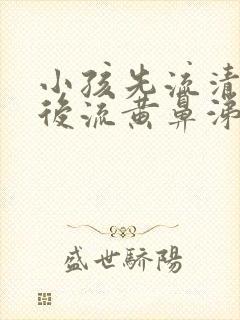 小孩先流清
後流黄鼻涕
盛世驕陽